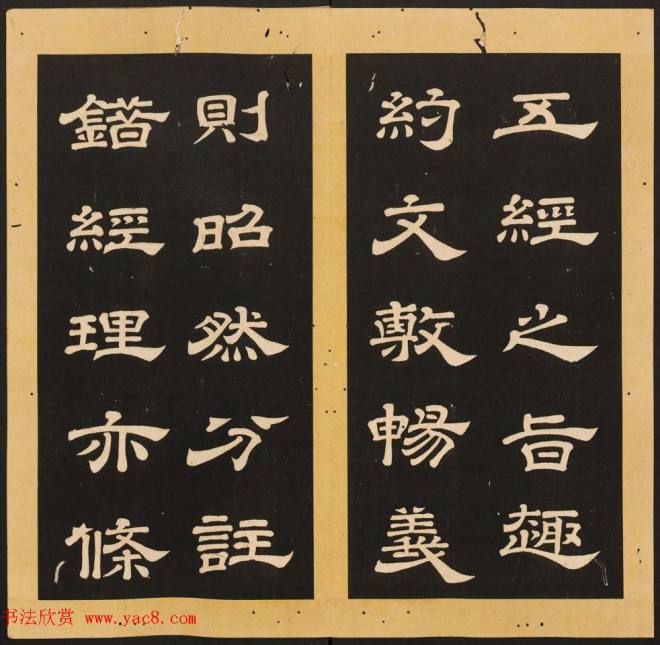 五經之旨趣
約文敷暢義
則昭然分註
錯經理亦條
书法欣赏 www.yac8.com